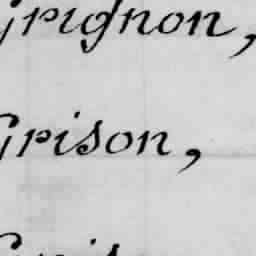 Grignon,
Grison,